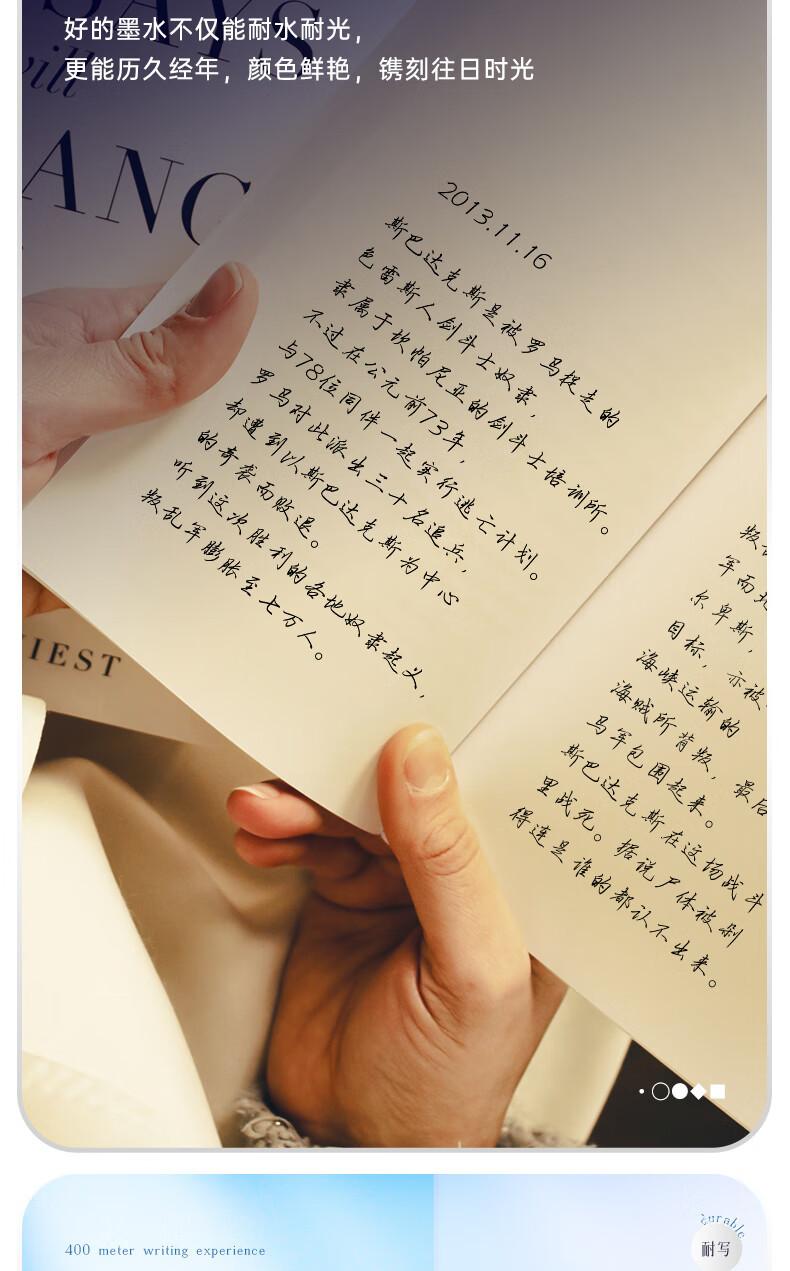 好的墨水不仅能耐水耐光，
更能历久经年，颜色鲜艳，镌刻往日时光
SAYS
will
ANC
2013.11.16
斯巴达克斯是被罗马捉走的
色雷斯人剑斗士奴隶，
隶属于坎帕尼亚的剑斗士培训所。
不过在公元前73年，
与78位同伴一起实行逃亡计划。
罗马对此派出三十名追兵，
却遭到以斯巴达克斯为中心
的奇袭而败退。
听到这次胜利的各地奴隶起义，
叛乱军膨胀至七万人。
IEST
军而
尔卑斯，
目标，亦被
海峡运输的
海贼所背叛，最后
马军包围起来。
斯巴达克斯在这场战斗
里战死。据说尸体被剁
得连是谁的都认不出来。
400 meter writing experience
durable
耐写